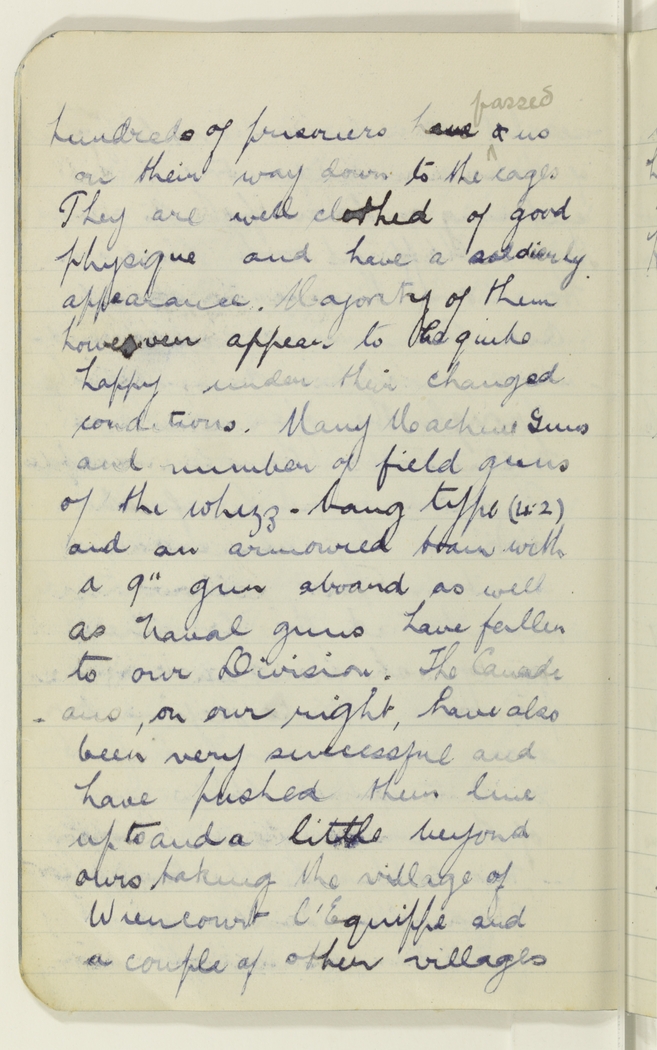 passed
hundreds of prisoners have us
on their way down to the cages
They are well clothed of good
physique and have a soldierly
appearance. Majority of them
however appear to be quite
happy under their changed
conditions. Many Machine Guns
and number of field guns
of the whizz-bang type (4.2)
and an armoured train with
a 9" gun aboard as well
as Naval guns have fallen
to our Division. The Canadi
-ans, on our right, have also
been very successful and
have pushed their line
up to and a little beyond
ours taking the village of
Wiencourt l'Equippe and
a couple of other villages